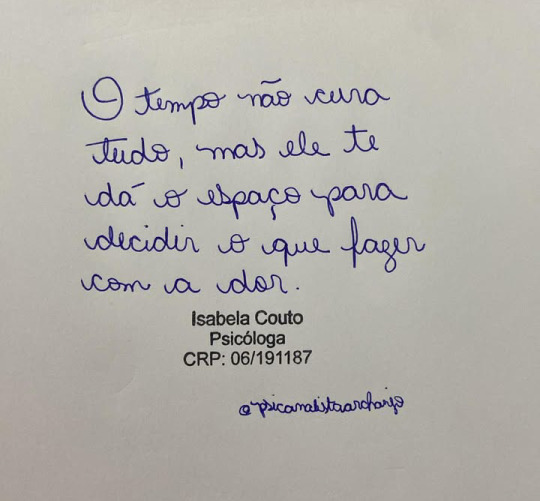 O tempo não cura
tudo, mas ele te
dá o espaço para
decidir o que fazer
com a dor.
Isabela Couto
Psicóloga
CRP: 06/191187
@psicanalistaarchanjo